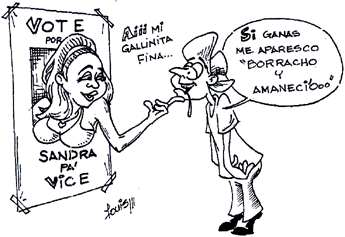 VOTE
POR
SANDRA
PA'
VICE
Aiii MI
GALLINITA
FINA...
Si GANAS
ME APARESCO
"BORRACHO
Y
AMANECIDOOO"
Louis